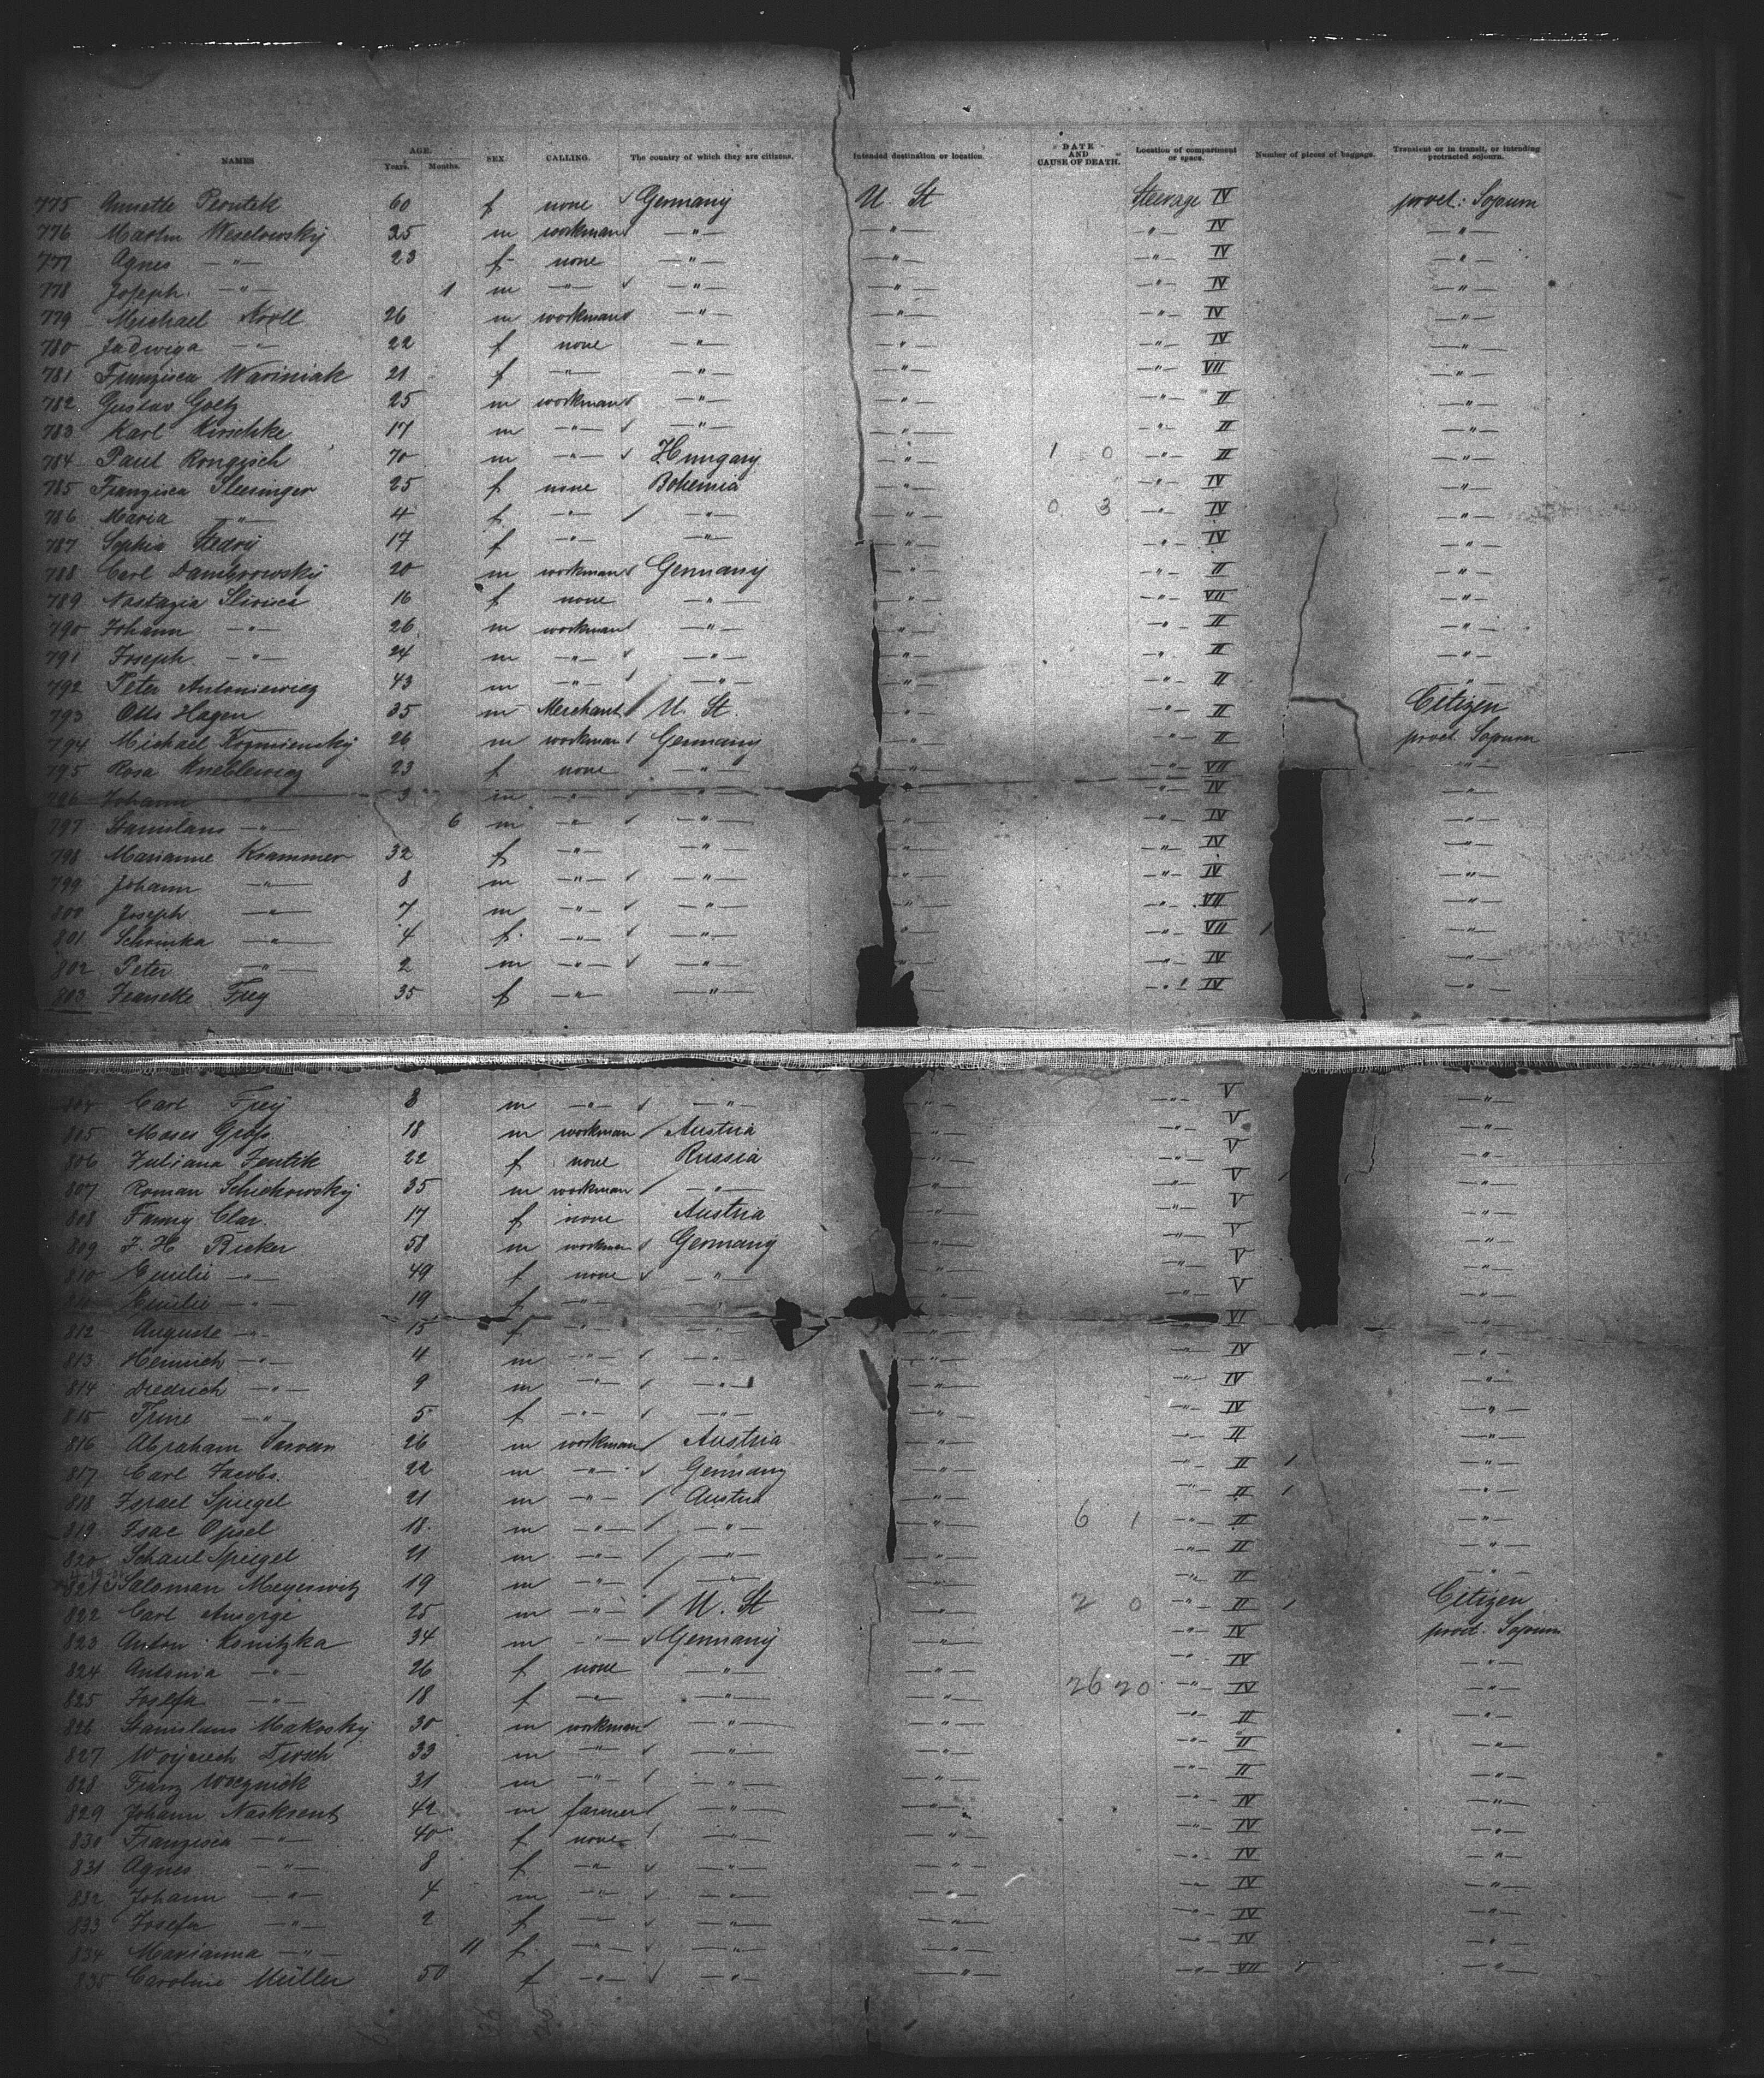 NAMES AGE. Years. Months. SEX. CALLING. The country of which they are citizens. Intended destination or location. DATE AND CAUSE OF DEATH. Location of compartment or space. Number of pieces of baggage. Transient or in transit, or intending protracted sojourn.
775 Annette 60 f none Germany U. St Steerage IV Sojourn
776 Martin Weselowsky 25 m workman " " " IV "
777 Agnes " 23 f none " " " IV "
778 Joseph " 1 m " " " " IV "
779 Michael Kroll 26 m workman " " " IV "
780 Jadwiga " 22 f none " " " IV "
781 Franzisca Wariniak 21 f " " " " VII "
782 Gustav Goetz 25 m workman " " " II "
783 Karl Kirschke 17 m " " " " II "
784 Paul 70 m " Hungary " 1 0 " II "
785 Franzisca 25 f none Bohemia " " IV "
786 Maria " 4 f " " " 0 3 " IV "
787 Sophia 17 f " " " " IV "
788 Carl Dambrowsky 20 m workman Germany " " II "
789 16 f none " " " VII "
790 Johann " 26 m workman " " " II "
791 Joseph " 24 m " " " " II "
792 Peter Antoniewicz 43 m " " " " II "
793 Otto Hagen 35 m Merchant U. St. " " II Citizen
794 Michael 26 m workman Germany " " II Sojourn
795 Rosa 23 f none " " " VII "
796 Johann 3 m " " " " IV "
797 Stanislaus " 6 m " " " IV "
798 Marianne Krammer 32 f " " " IV "
799 Johann " 8 m " " " " IV "
800 Joseph " 7 m " " " " VII "
801 " 4 f " " " " VII "
802 Peter " 2 m " " " " IV "
803 Jeanette Frey 35 f " " " IV "
804 Carl Frey 8 m " " " " V "
805 Moses Gross 18 m workman Austria " " V "
806 Juliana 22 f none Russia " " V "
807 Roman 35 m workman " " " V "
808 Fanny Clar. 17 f none Austria " " V "
809 J. H Becker 58 m workman Germany " " V "
810 Emilie " 49 f none " " " V "
811 Emilie " 19 f " " " " V "
812 Auguste " 15 f " " " VI "
813 Heinrich " 4 m " " " " IV "
814 Diedrich " 9 m " " " " IV "
815 Trine " 5 f " " " " IV "
816 Abraham 26 m workman Austria " " II "
817 Carl Jacobs. 22 m " Germany " " II "
818 Israel Spiegel 21 m " Austria " " II "
819 Isac Opsel 18 m " " " 6 1 " II "
820 Schaul Spiegel 21 m " " " " II "
821 Saloman Meyerwitz 19 m " " " II "
822 Carl Ansorge 25 m " U. St " 2 0 " II Citizen
823 Anton Konitzka 34 m " Germany " " IV Sojourn
824 Antonia " 26 f none " " " IV "
825 Josefa " 18 f " " " 26 20 " IV "
826 Stanislaus Makosky 30 m workman " " " II "
827 33 m " " " " II "
828 Franz 31 m " " " " II "
829 Johann 42 m farmer " " " IV "
830 Franzisca " 40 f none " " " IV "
831 Agnes " 8 f " " " " IV "
832 Johann " 4 m " " " " IV "
833 Josefa " 2 f " " " " IV "
834 Marianna " 11 f " " " " IV "
835 Caroline Müller 50 f " " " " VII "